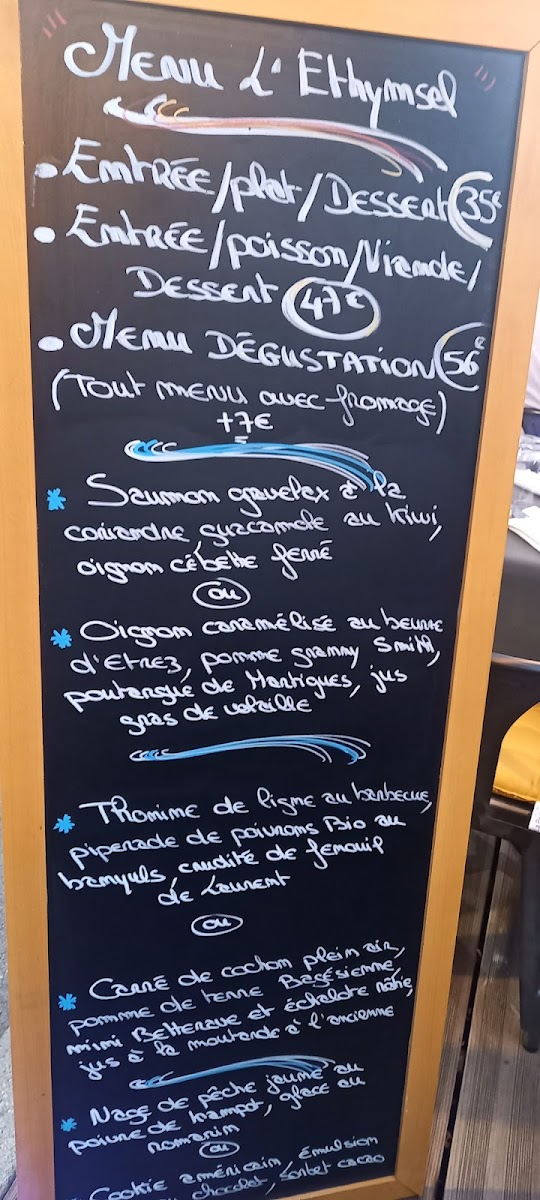 Menu L'Ethymsel
• Entrée/plat/Dessert 35€
• Entrée/poisson/Viande/
Dessert 47€
• Menu DÉGUSTATION 56€
(Tout menu avec fromage)
+7€
* Saumon gravelax à la
coriandre, guacamole au kiwi,
oignon cébette ferré
ou
* Oignon caramélisé au beurre
d'Etrez, pomme granny Smith,
poutargue de Martigues, jus
gras de volaille
* Thonine de ligne au barbecue,
piperade de poivrons Bio au
banyuls, crudité de fenouil
de Laurent
ou
* Carré de cochon plein air,
pomme de terre Bagésienne,
mini Betterave et échalote rôtie,
jus à la moutarde à l'ancienne
* Nage de pêche jaune au
poivre de kampot, glace au
romarin
ou
* Cookie américain, émulsion
chocolat, Sorbet cacao